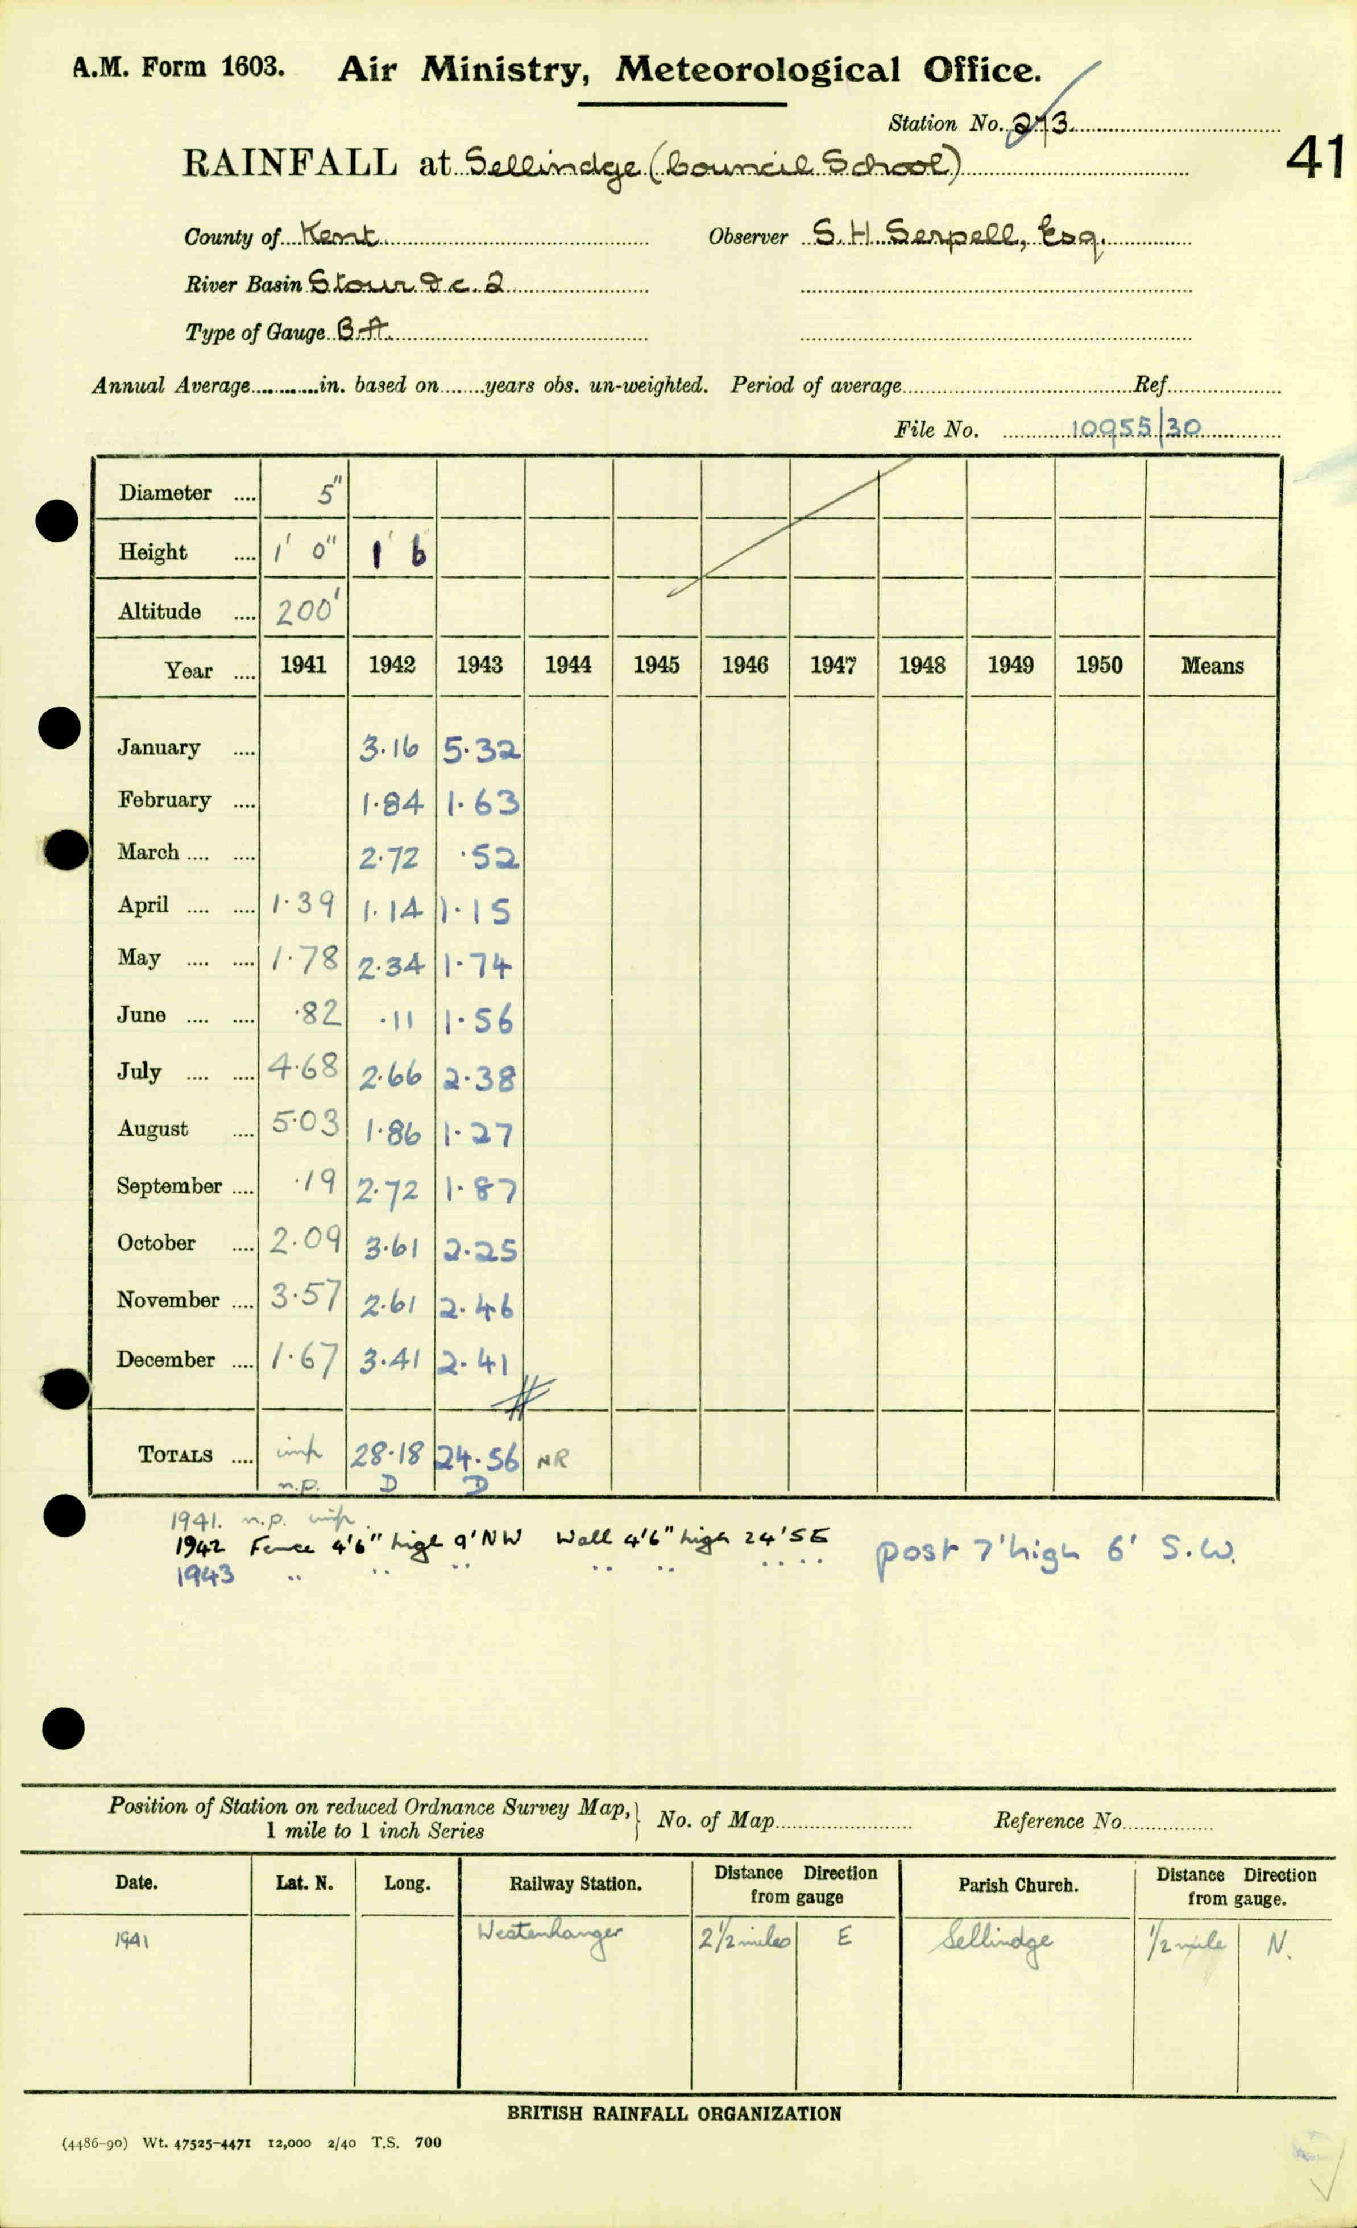 A.M. Form 1603. Air Ministry, Meteorological Office.
Station No. 273
41
RAINFALL at Sellindge (Council School)
County of Kent Observer S. H. Serpell, Esq.
River Basin Stour &c. 2
Type of Gauge B.A.
Annual Average............in. based on.......years obs. un-weighted. Period of average.......... Ref..........
File No. 10955/30
Diameter .... 5"
Height .... 1' 0" 1' 6
Altitude .... 200'
Year .... 1941 1942 1943 1944 1945 1946 1947 1948 1949 1950 Means
January .... 3.16 5.32
February .... 1.84 1.63
March .... .... 2.72 .52
April .... .... 1.39 1.14 1.15
May .... .... 1.78 2.34 1.74
June .... .... .82 .11 1.56
July .... .... 4.68 2.66 2.38
August .... 5.03 1.86 1.27
September .... .19 2.72 1.87
October .... 2.09 3.61 2.25
November .... 3.57 2.61 2.46
December .... 1.67 3.41 2.41
TOTALS .... imp 28.18 24.56 NR
n.p. D D
1941. n.p. imp.
1942 Fence 4'6" high 9' NW Wall 4'6" high 24' SE post 7' high 6' S.W.
1943 " " " " " " "
Position of Station on reduced Ordnance Survey Map, } No. of Map.......... Reference No..........
1 mile to 1 inch Series
Date. Lat. N. Long. Railway Station. Distance Direction from gauge Parish Church. Distance Direction from gauge.
1941 Westenhanger 2 1/2 miles E Sellindge 1/2 mile N.
BRITISH RAINFALL ORGANIZATION
(4486-90) Wt. 47525-4471 12,000 2/40 T.S. 700